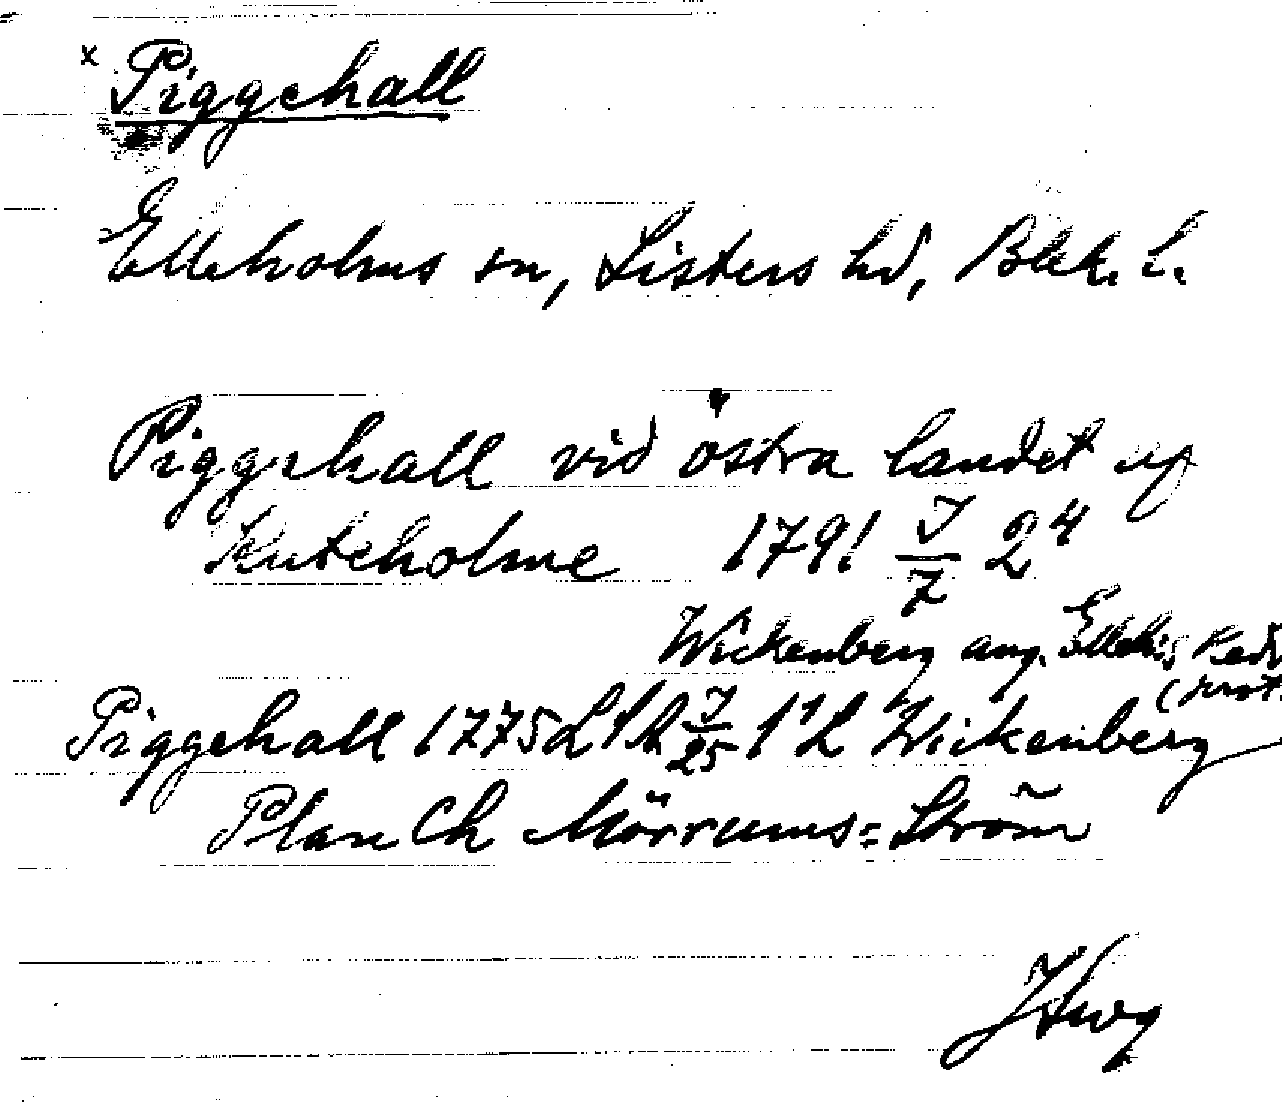 x Piggehall
Elleholms sn, Listers hd, Blek. l.
Piggehall vid östra landet af
Kuteholme 1791 J/7 2 4
Wickenberg ang. Elleh:s
Piggehall 1775 J/25 Wickenberg
Plan Ch Mörrums= Ström